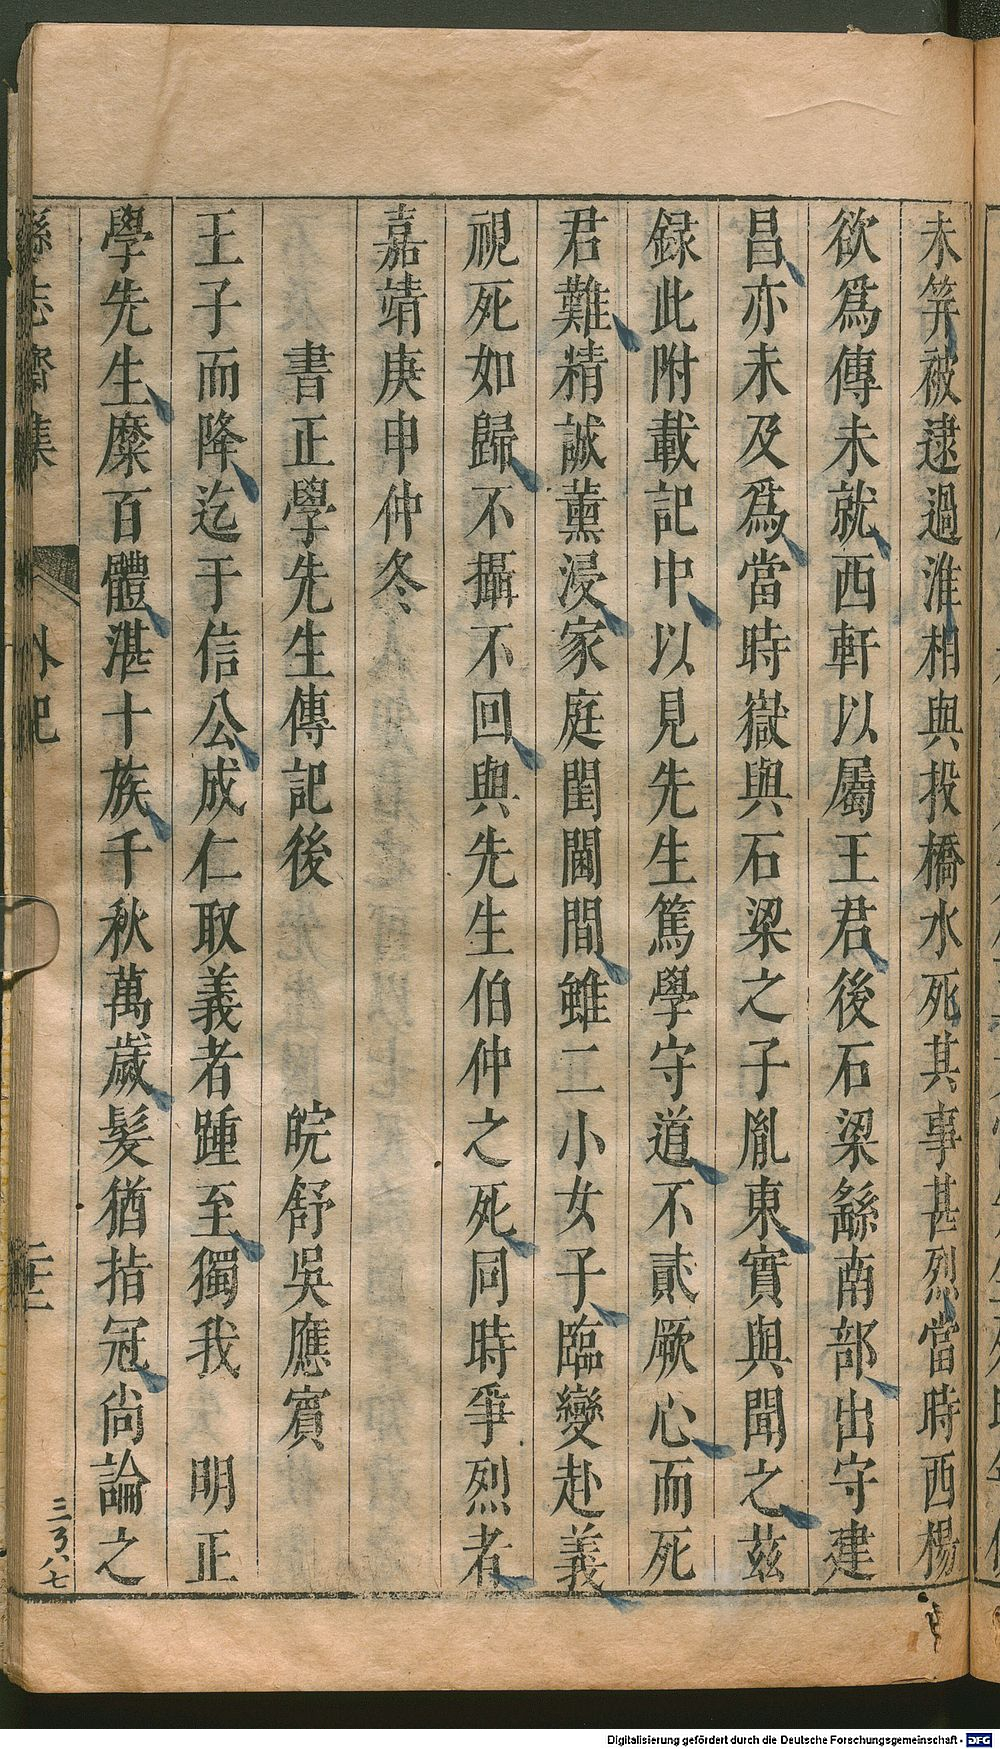 未筓被逮過淮相與投橋水死其事甚烈當時西楊
欲爲傳未就西軒以屬王君後石梁繇南部出守建
昌亦未及爲當時嶽與石梁之子胤東實與聞之茲
録此附載記中以見先生篤學守道不貳厥心而死
君難精誠薰浸家庭閨閫間雖二小女子臨變赴義
視死如歸不攝不回與先生伯仲之死同時爭烈者
嘉靖庚申仲冬
書正學先生傳記後 皖舒吳應賓
王子而降迄于信公成仁取義者踵至獨我 明正
學先生糜百體湛十族千秋萬歲髮猶指冠尙論之
遜志齋集 外紀
Digitalisierung gefördert durch die Deutsche Forschungsgemeinschaft - DFG